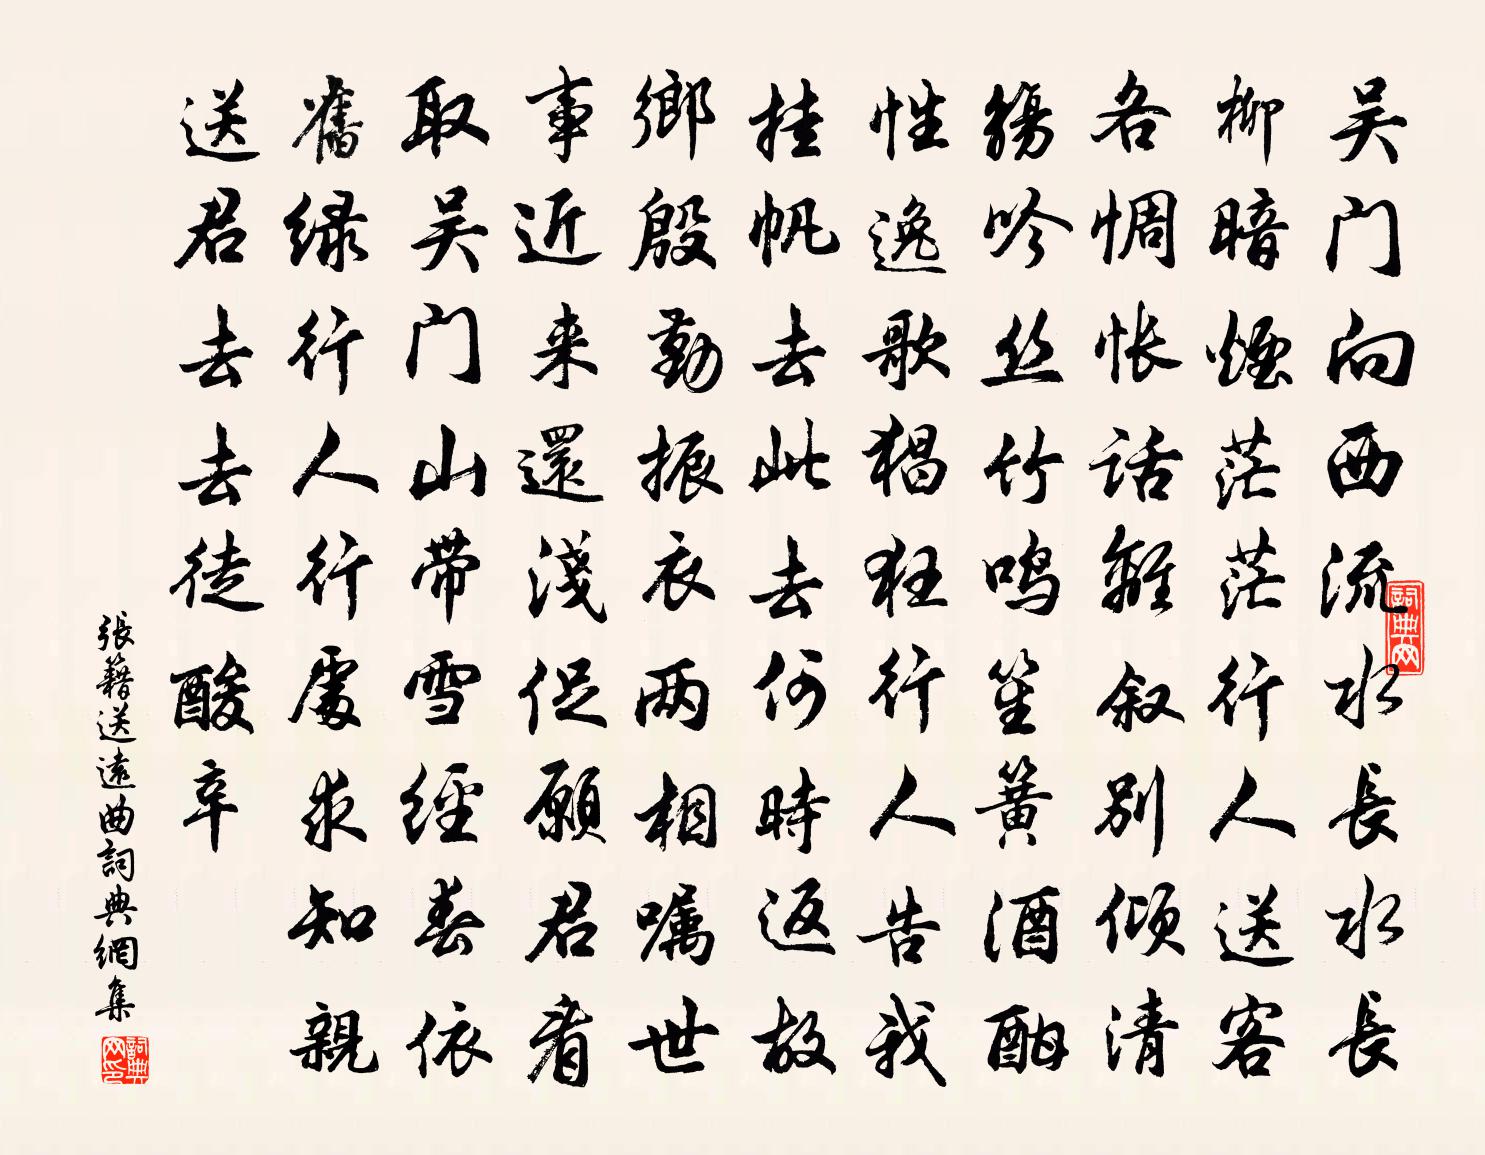 吴门向西流水長水長
柳暗煙茫茫行人送客
各惆怅话離叙别倾清
觴吟丝竹鸣笙簧酒酣
性逸歌猖狂行人告我
挂帆去此去何時返故
鄉殷勤振衣两相嘱世
事近来還淺促願君看
取吴门山带雪經春依
舊绿行人行處求知親
送君去去徒酸辛
張籍送遠曲詞典網集
詞典网
詞典网印